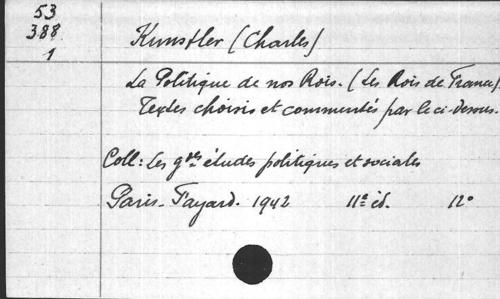 53
388
1
Kunstler (Charles)
La Politique de nos Rois. (Les Rois de France).
Textes choisis et commentés par le ci-dessus.
Coll: Les gdes études politiques et sociales
Paris. Fayard. 1942 11e éd. 12º